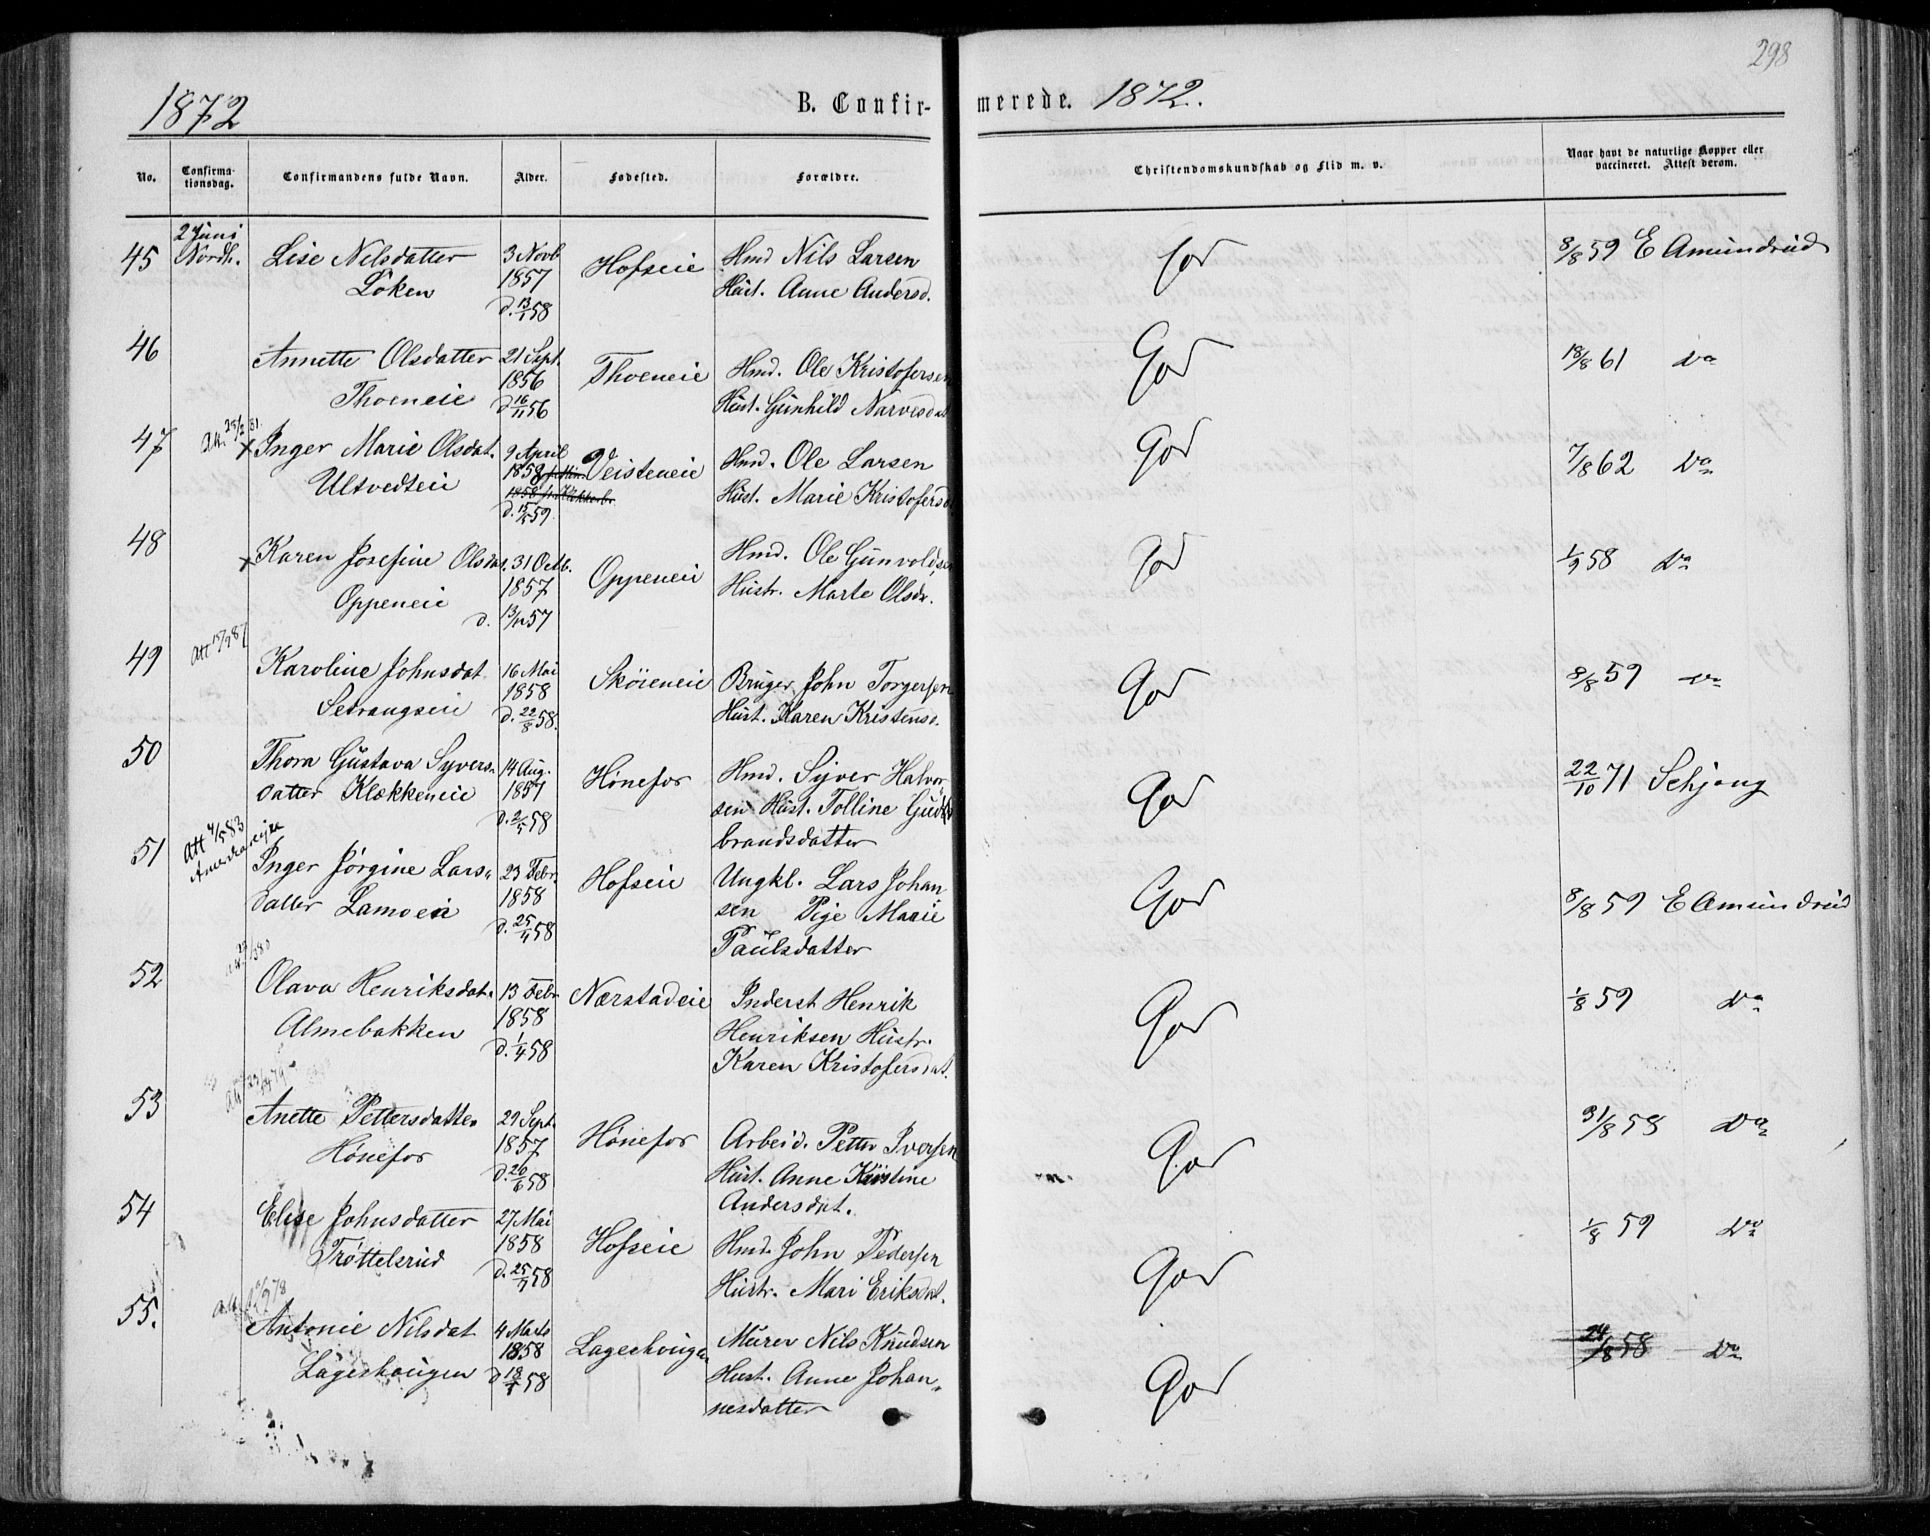 298
1872
B. Confir-
merede. 1872.
No.
Confirma-
tionsdag.
Confirmandens fulde Navn.
Alder.
Fødested.
Forældre.
Christendomskundskab og Flid m. v.
Naar havt de naturlige Kopper eller
vaccineret. Attest derom.
45
2 Juni
Nordh.
Lise Nilsdatter
Løken
3 Novb
1857
d. 13/1 58
Hofseie
Hmd Nils Larsen
Hust. Anne Andersd.
God
8/8 59 E Amundrud
46
Annette Olsdatter
Thoeneie
21 Sept.
1856
d 16/11 56
Thoeneie
Hmd. Ole Kristofersen
Hust. Gunhild Narvesdat
God
18/8 61 Do
47
Inger Marie Olsdat.
Ultvedteie
9 April
1858
d. 15/5 59
Veisteneie
Hmd. Ole Larsen
Hust. Marie Kristofersd
God
7/8 62 Do
48
Karen Josefine Olsdat.
Oppeneie
31 Octb.
1857
d. 13/12 57
Oppeneie
Hmd. Ole Gunvoldsen
Hustr. Marte Olsdr.
God
1/9 58 Do
49
Att 15/9 87
Karoline Johnsdat.
Setrangseie
16 Mai
1858
d. 22/8 58.
Skøieneie
Bruger John Torgersen
Hust. Karen Kristensd.
God
8/8 59 Do
50
Thora Gustava Syvers-
datter Klækkeneie
14 Aug.
1857
d. 2/5 58
Hønefos
Hmd. Syver Halvor-
sen Hust. Tolline Gud-
brandsdatter
God
22/10 71 Schjong
51
Att 4/5 83
Amerikareise
Inger Jørgine Lars-
datter Lamoen
23 Febr.
1858
d. 25/4 58
Hofseie
Ungkl. Lars Johan
sen Pige Maarie
Paulsdatter
God
8/8 59 E Amundrud
52
Olava Henriksdat.
Almebakken
13 Febr
1858
d. 1/4 58
Nærstadeie
Inderst Henrik
Henriksen Hustr.
Karen Kristofersdat.
God
1/8 59 Do
53
Anette Pettersdatter
Hønefos
29 Sept.
1857
d. 20/6 58
Hønefos
Arbeid. Petter Iversen
Hust. Anne Kirstine
Andersdat.
God
31/8 58 Do
54
Elise Johnsdatter
Trøttelsrud
27 Mai
1858
d. 25/7 58
Hofseie
Hmd. John Pedersen
Hustr. Mari Eriksdat.
God
1/8 59 Do
55.
Antonie Nilsdat
Lageshaugen
4 Marts
1858
d 18/4 58
Lageshaugen
Murer Nils Knudsen
Hust. Anne Johan-
nesdatter
God
24/8 58 Do